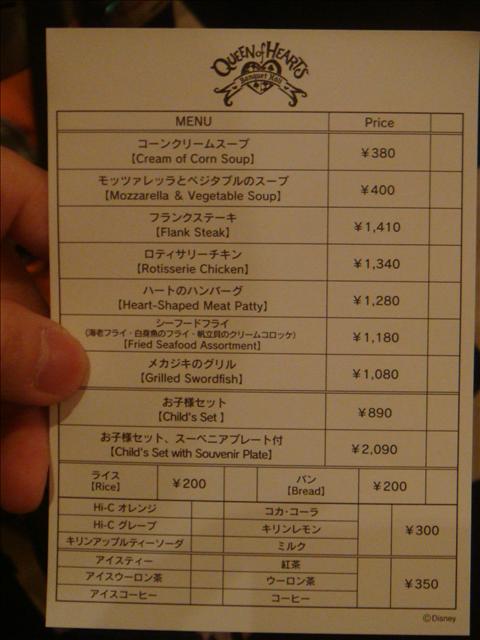 QUEEN of HEARTS
Banquet Hall
MENU Price
コーンクリームスープ
【Cream of Corn Soup】 ¥380
モッツァレッラとベジタブルのスープ
【Mozzarella & Vegetable Soup】 ¥400
フランクステーキ
【Flank Steak】 ¥1,410
ロティサリーチキン
【Rotisserie Chicken】 ¥1,340
ハートのハンバーグ
【Heart-Shaped Meat Patty】 ¥1,280
シーフードフライ
(海老フライ・白身魚のフライ・帆立貝のクリームコロッケ)
【Fried Seafood Assortment】 ¥1,180
メカジキのグリル
【Grilled Swordfish】 ¥1,080
お子様セット
【Child's Set】 ¥890
お子様セット、スーベニアプレート付
【Child's Set with Souvenir Plate】 ¥2,090
ライス
【Rice】 ¥200
パン
【Bread】 ¥200
Hi-C オレンジ コカ・コーラ
Hi-C グレープ キリンレモン ¥300
キリンアップルティーソーダ ミルク
アイスティー 紅茶
アイスウーロン茶 ウーロン茶 ¥350
アイスコーヒー コーヒー
©Disney